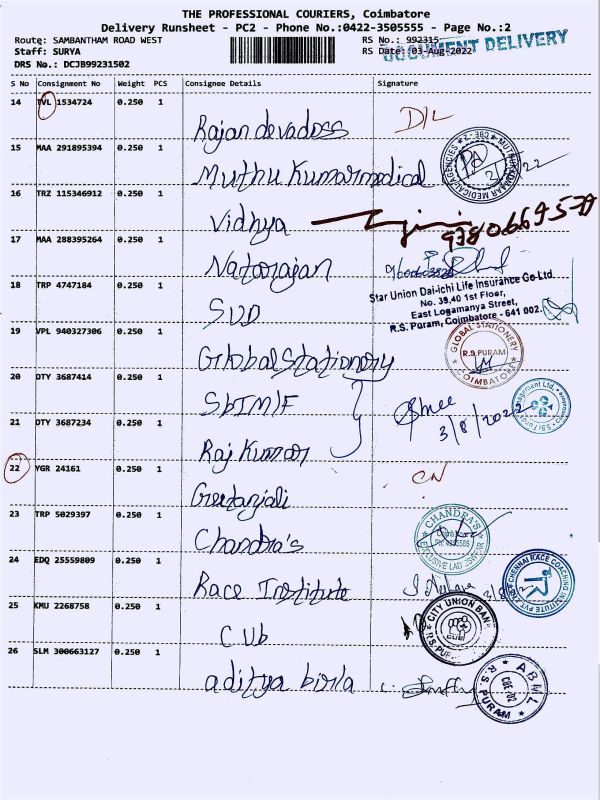 THE PROFESSIONAL COURIERS, Coimbatore
Delivery Runsheet - PC2 - Phone No.:0422-3505555 - Page No.:2
Route: SAMBANTHAM ROAD WEST RS No.: 992315
Staff: SURYA RS Date: 03-Aug-2022
DOCUMENT DELIVERY
DRS No.: DCJB99231502
S No Consignment No Weight PCS Consignee Details Signature
14 TVL 1534724 0.250 1
Rajan devadoss D/L
15 MAA 291895394 0.250 1
Muthu Kumar medical
16 TRZ 115346912 0.250 1
Vidhya
17 MAA 288395264 0.250 1
Natarajan
18 TRP 4747184 0.250 1
SUD
Star Union Dai-ichi Life Insurance Co Ltd
No. 39,40 1st Floor,
East Logamanya Street,
R.S. Puram, Coimbatore - 641 002.
19 VPL 940327306 0.250 1
Global Stationery
GLOBAL STATIONERY
R.S.PURAM
COIMBATORE
20 DTY 3687414 0.250 1
SbIM/F
3/8/2022
21 DTY 3687234 0.250 1
Raj Kumar
22 YGR 24161 0.250 1
Geetanjali CN
23 TRP 5029397 0.250 1
Chandra's
CHANDRA'S
24 EDQ 25559809 0.250 1
Race Institute
CHENNAI RACE COACHING INSTITUTE PVT
25 KMU 2268758 0.250 1
CUb
CITY UNION BANK
CUB
R.S. PUR
26 SLM 300663127 0.250 1
aditya birla
ABML
R.S. PURAM